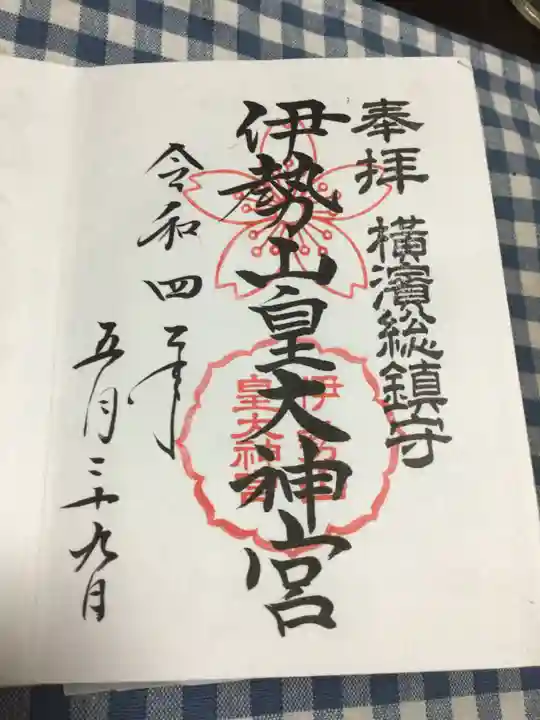 奉拝 横濱総鎮守
伊勢山皇大神宮
令和四年
五月二十九日